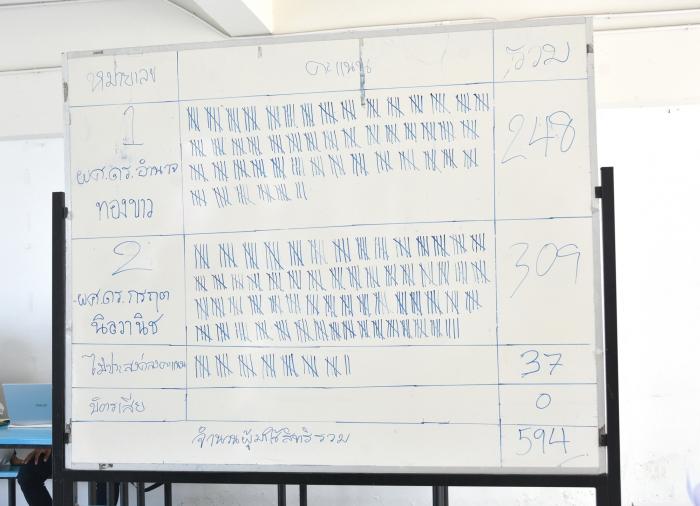 หมายเลข คะแนน รวม
1 248
ผศ.ดร.อำนาจ
ทองขาว
2 309
ผศ.ดร.กรกฤต
นิลวานิช
ไม่ประสงค์ลงคะแนน 37
บัตรเสีย 0
จำนวนผู้มาใช้สิทธิรวม 594